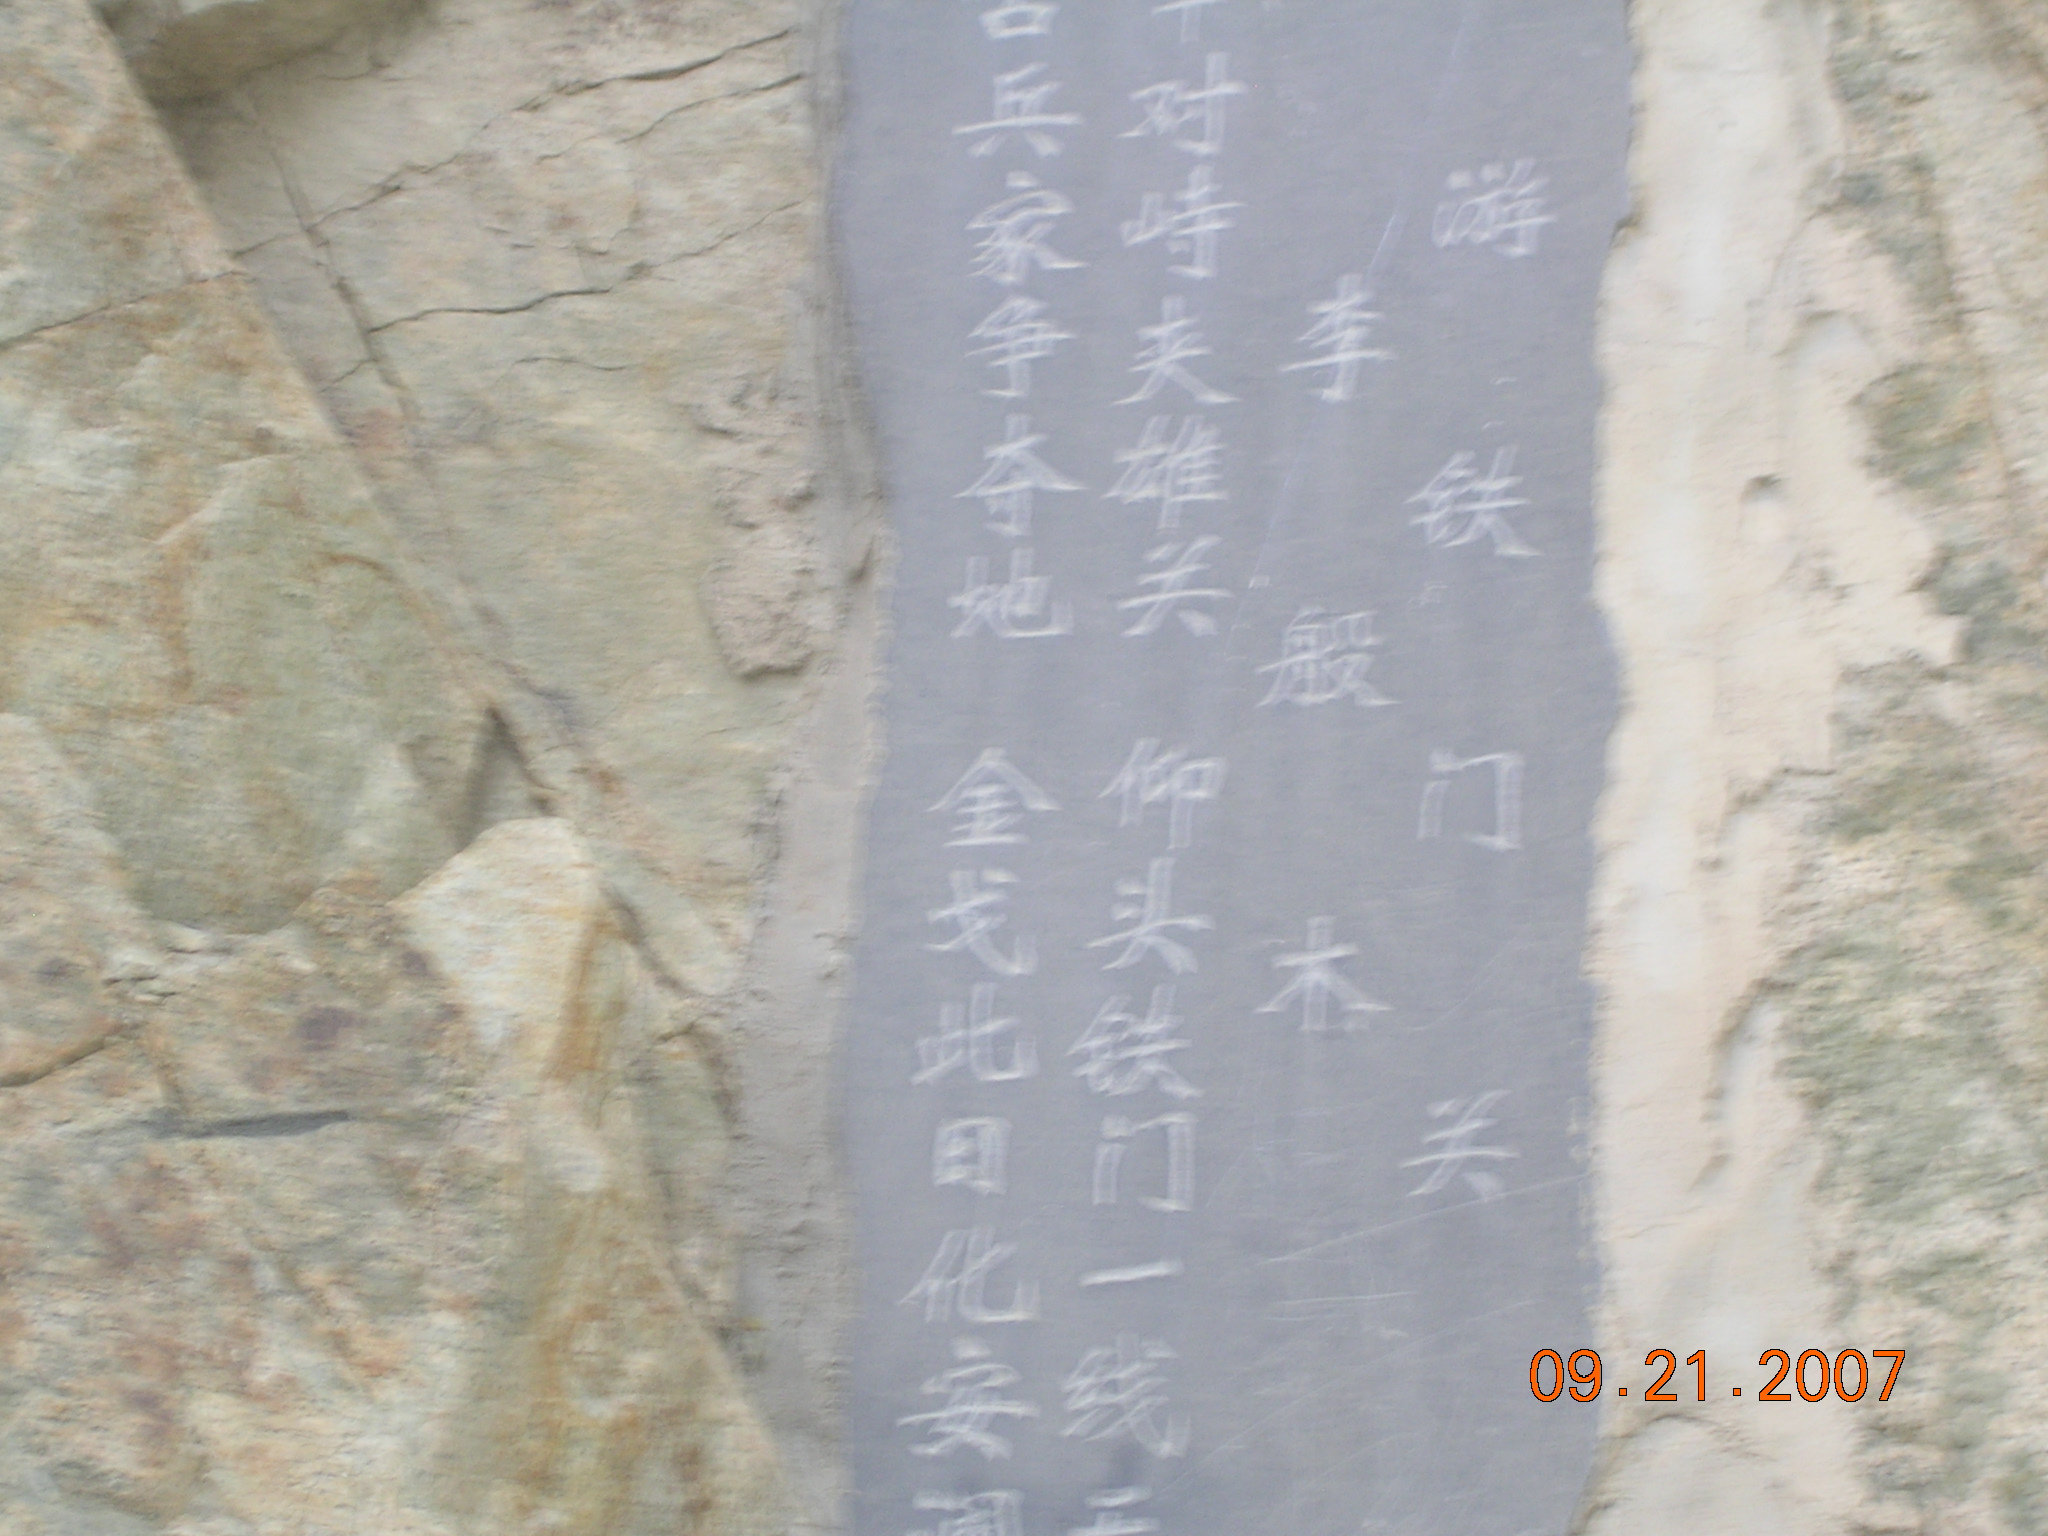 游铁门关
李般木
对峙夹雄关 仰头铁门一线
兵家争夺地 金戈此日化安
09.21.2007